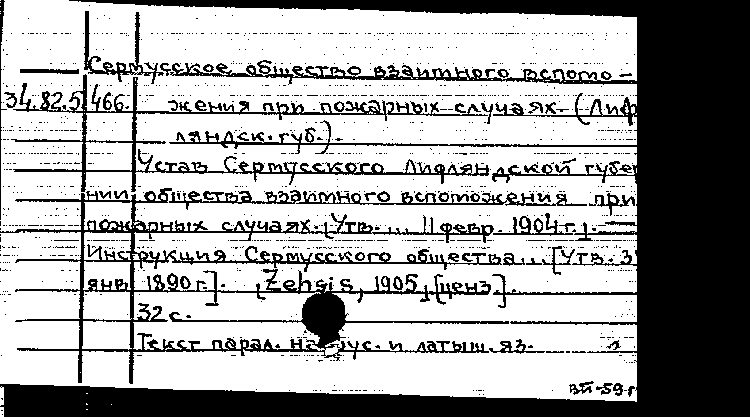 Сермусское общество взаимного вспомо-
34.82.5 466. жения при пожарных случаях. (Лиф
ляндск. губ.).
Устав Сермусского Лифляндской губер
нии общества взаимного вспоможения при
пожарных случаях. [Утв. ... 11 февр. 1904 г.]. —
Инструкция Сермусского общества... [Утв. 3
янв. 1890 г.]. [Zehsis, 1905, [ценз.].
32 с.
Текст парал. на рус. и латыш. яз.